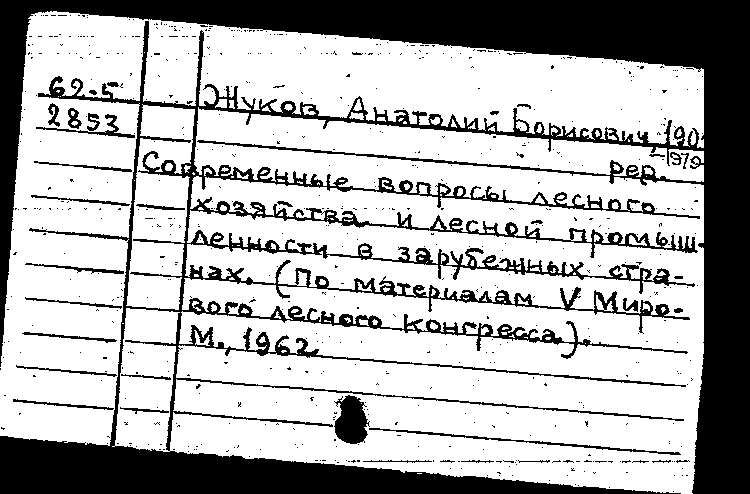 62-5
2853
Жуков, Анатолий Борисович, 190
-1979
ред.
Современные вопросы лесного
хозяйства и лесной промыш-
ленности в зарубежных стра-
нах. (По материалам V Миро-
вого лесного конгресса).
М., 1962